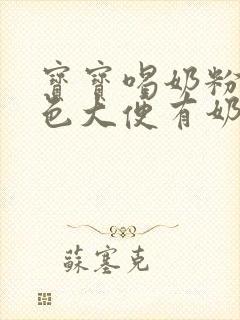 寶寶喝奶粉
色大便有奶
蘇塞克